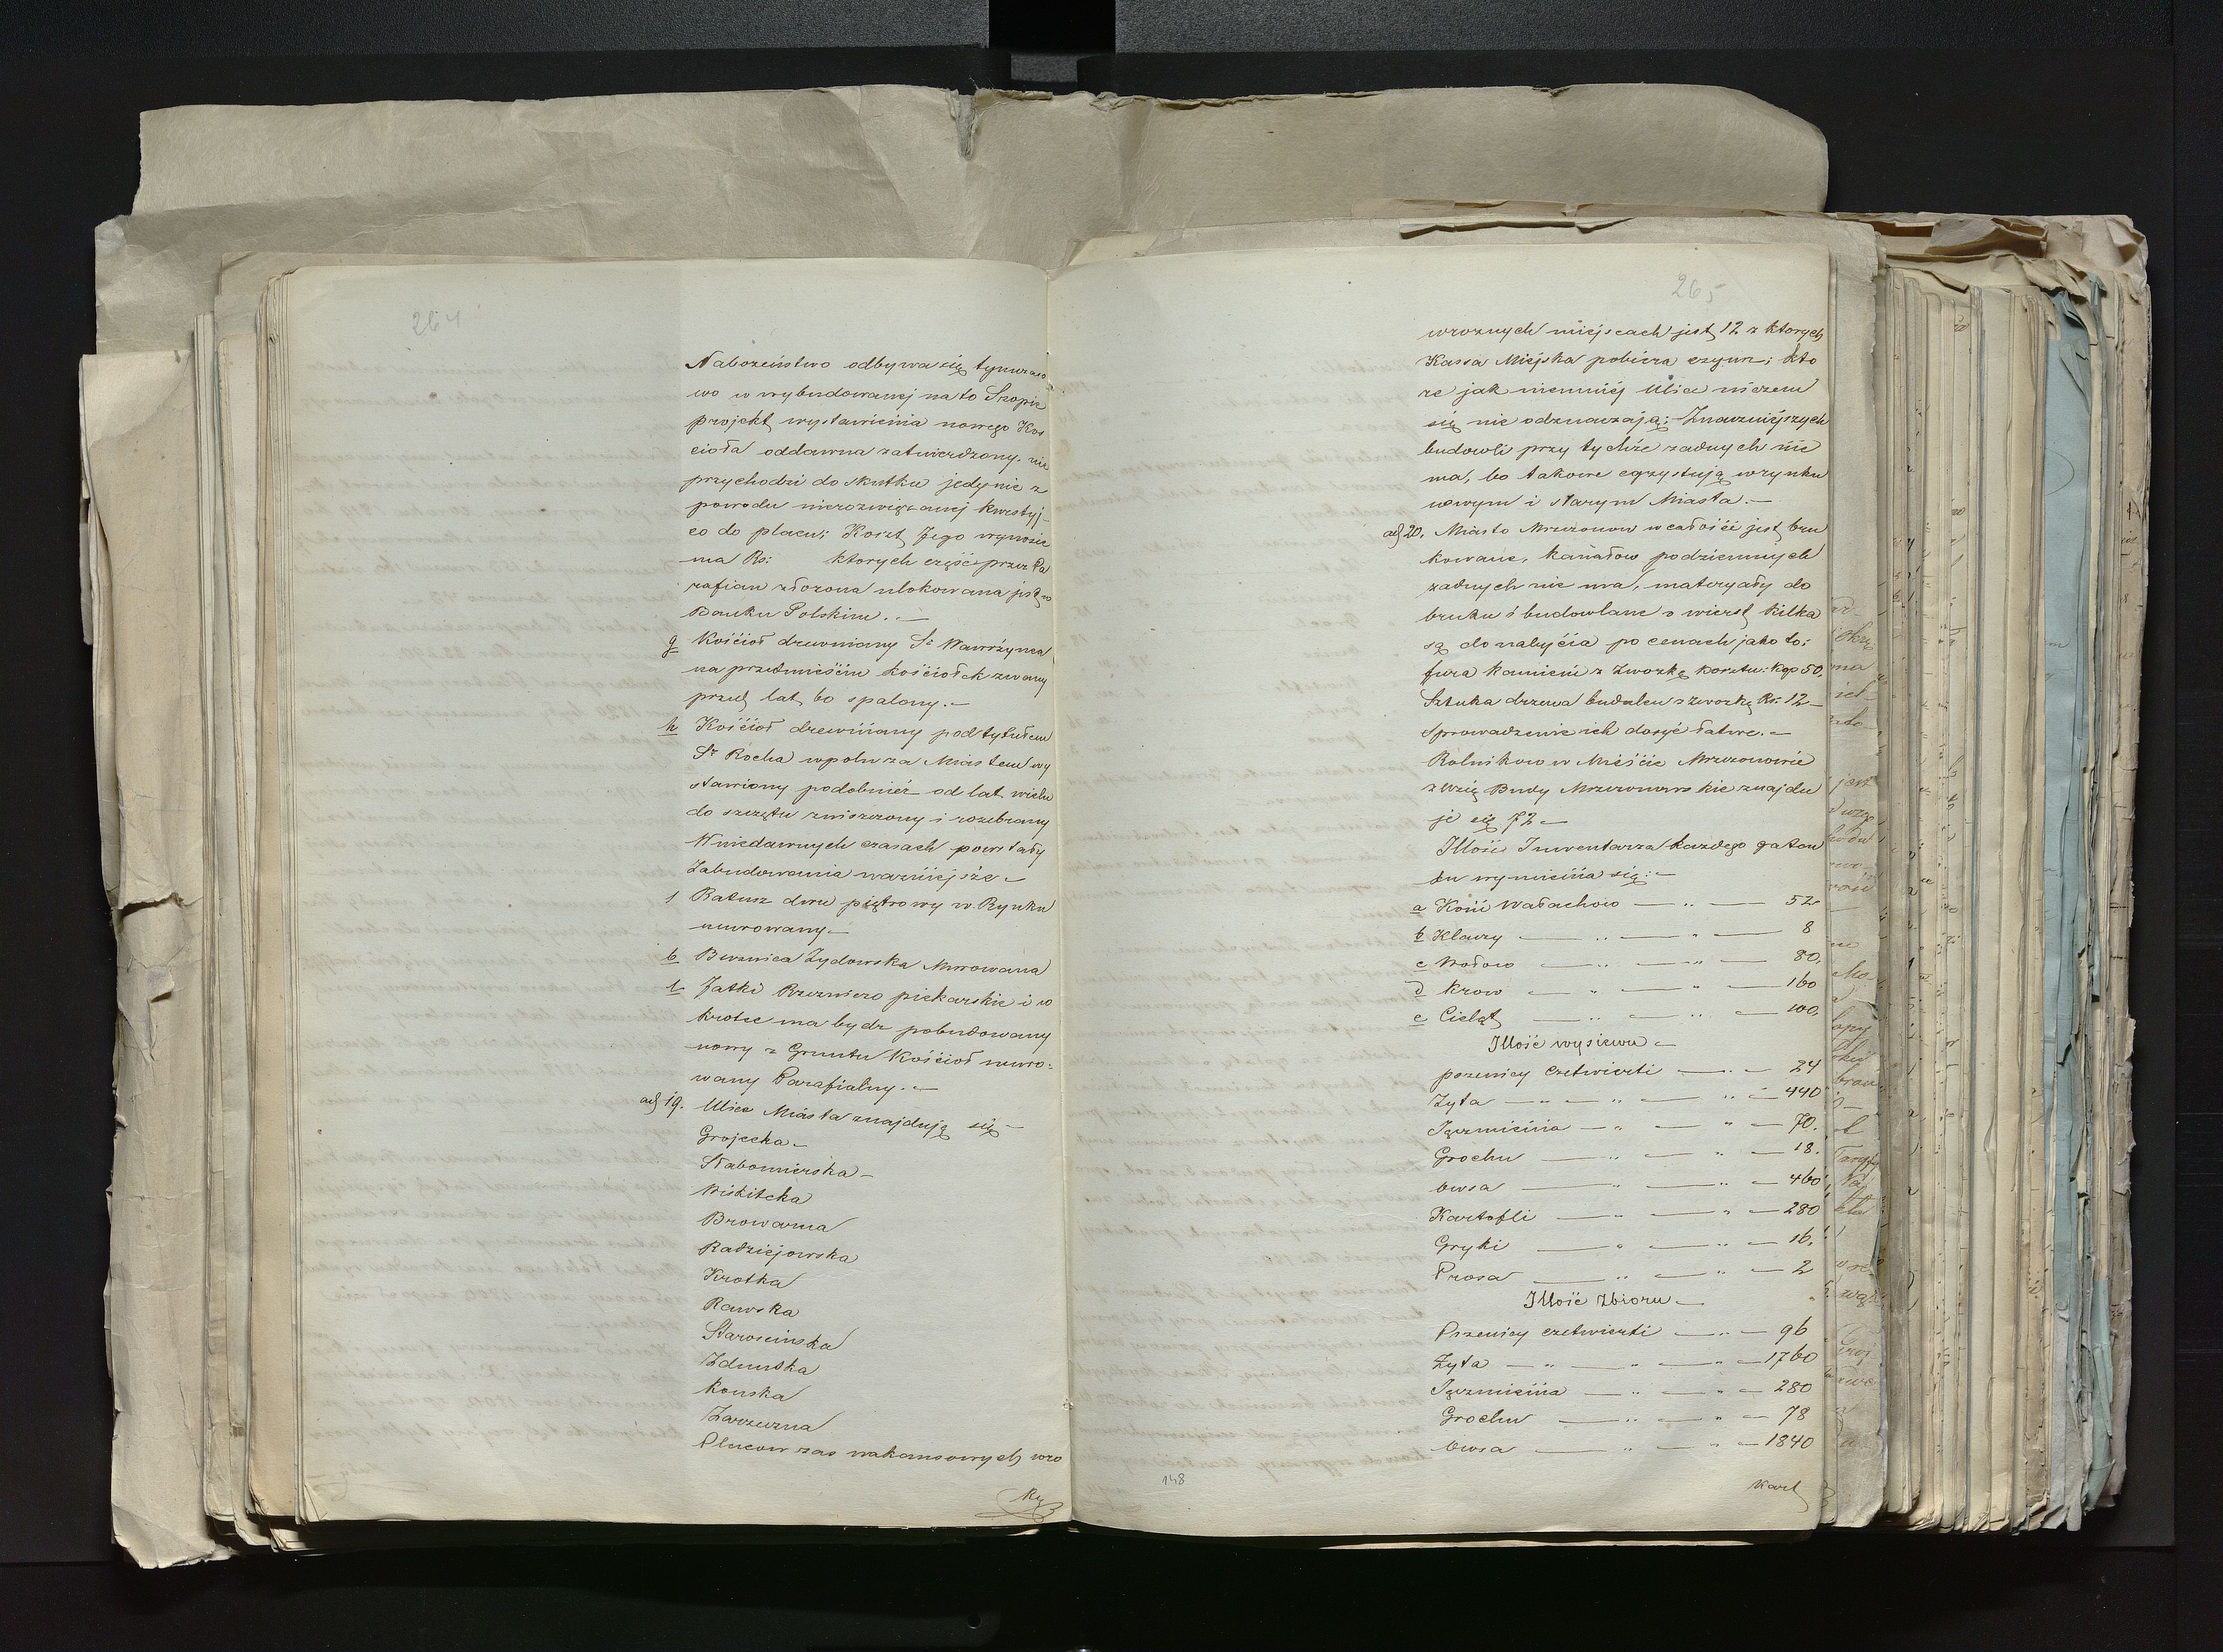 264
Nabożeństwo odbywa się tymczaso
wo w wybudowanej na to Szopie
projekt wystawienia nowego Kos
cioła oddawna zatwierdzony, nie
przychodzi do skutku jedynie z
powodu nierozwięzanej kwestyj
co do placu; Koszt Jego wynosić
ma Rs: ktorych część przez Pa
rafian złożona ulokowana jest w
Banku Polskim.—
g Kościoł drewniany Sgo Wawrzyńca
na przedmieściu kościołek zwany
przed lat 60 spalony.—
h Kościoł drewniany pod tytułem
Sgo Rocha w polu za Miastem wy
stawiony podobnież od lat wielu
do szczętu zniszczony i rozebrany
W niedawnych czasach powstały
Zabudowania ważniejsze—
1 Ratusz dwu piętrowy w Rynku
murowany—
b Bożnica Żydowska Murowana
Jatki Rzeznicze piekarskie i w
krotce ma bydz pobudowany
nowy z Gruntu Kościoł muro=
wany Parafialny.—
ad 19. Ulice Miasta znajdują się—
Grojecka—
Nabomierska—
Wiskitcka
Browarna
Radziejowska
Krotka
Rawska
Staroscinska
Zdunska
Konska
Zarzeczna
Placow zas wakansowych wro
265
wroznych miejscach jest 12 z ktorych
Kassa Miejska pobiera czynsz; kto
re jak niemniej Ulice niczem
się nie odznaczają; Znaczniejszych
budowli przy tychże zadnych nie
ma, bo takowe egzystują w rynku
nowym i starym Miasta.—
ad 20. Miasto Mszczonow w całości jest bru
kowane, kanałow podziemnych
zadnych nie ma, materyały do
bruku i budowlane o wierst kilka
są do nabycia po cenach jako to:
fura kamieni z Zwozką kosztu: Kop 50,
Sztuka drzewa budulcu z zwozką Rs. 12—
Sprowadzenie ich dosyć łatwe.—
Rolnikow w Mieście Mszczonowie
z Wsią Budy Mszczonowskie znajdu
je się 72—
Illość Inwentarza kazdego gatun
ku wymienia się:—
a Koni Wałachow — „ — 52
b Klaczy — „ — „ — 8
c Wołow — „ — „ — 80,
d Krow — „ — „ — 160
e Cieląt — „ — „ — 100,
Illość wysiewu—
pszenicy czetwierti — „ — 24
Żyta — „ — „ — „ — 440
Jęczmienia — „ — „ — 70.
Grochu — „ — „ — 18.
Owsa — „ — „ — 460
Kartofli — „ — „ — 280
Gryki — „ — „ — 16.
Prosa — „ — „ — 2
Illość Zbioru—
Pszenicy czetwierti — „ — 96
Żyta — „ — „ — 1760
Jęczmienia — „ — „ — 280
Grochu — „ — „ — 78
Owsa — „ — „ — 1840
148
Kart